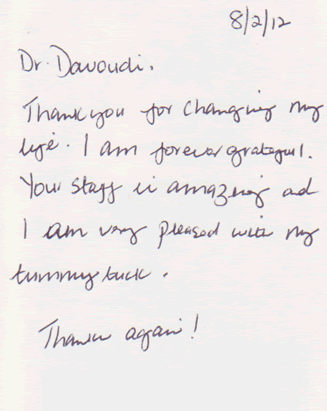 8/2/12
Dr. Davoudi.
Thank you for changing my
life. I am forever grateful.
Your staff is amazing ad
I am very pleased with my
tummy tuck.
Thanks again!